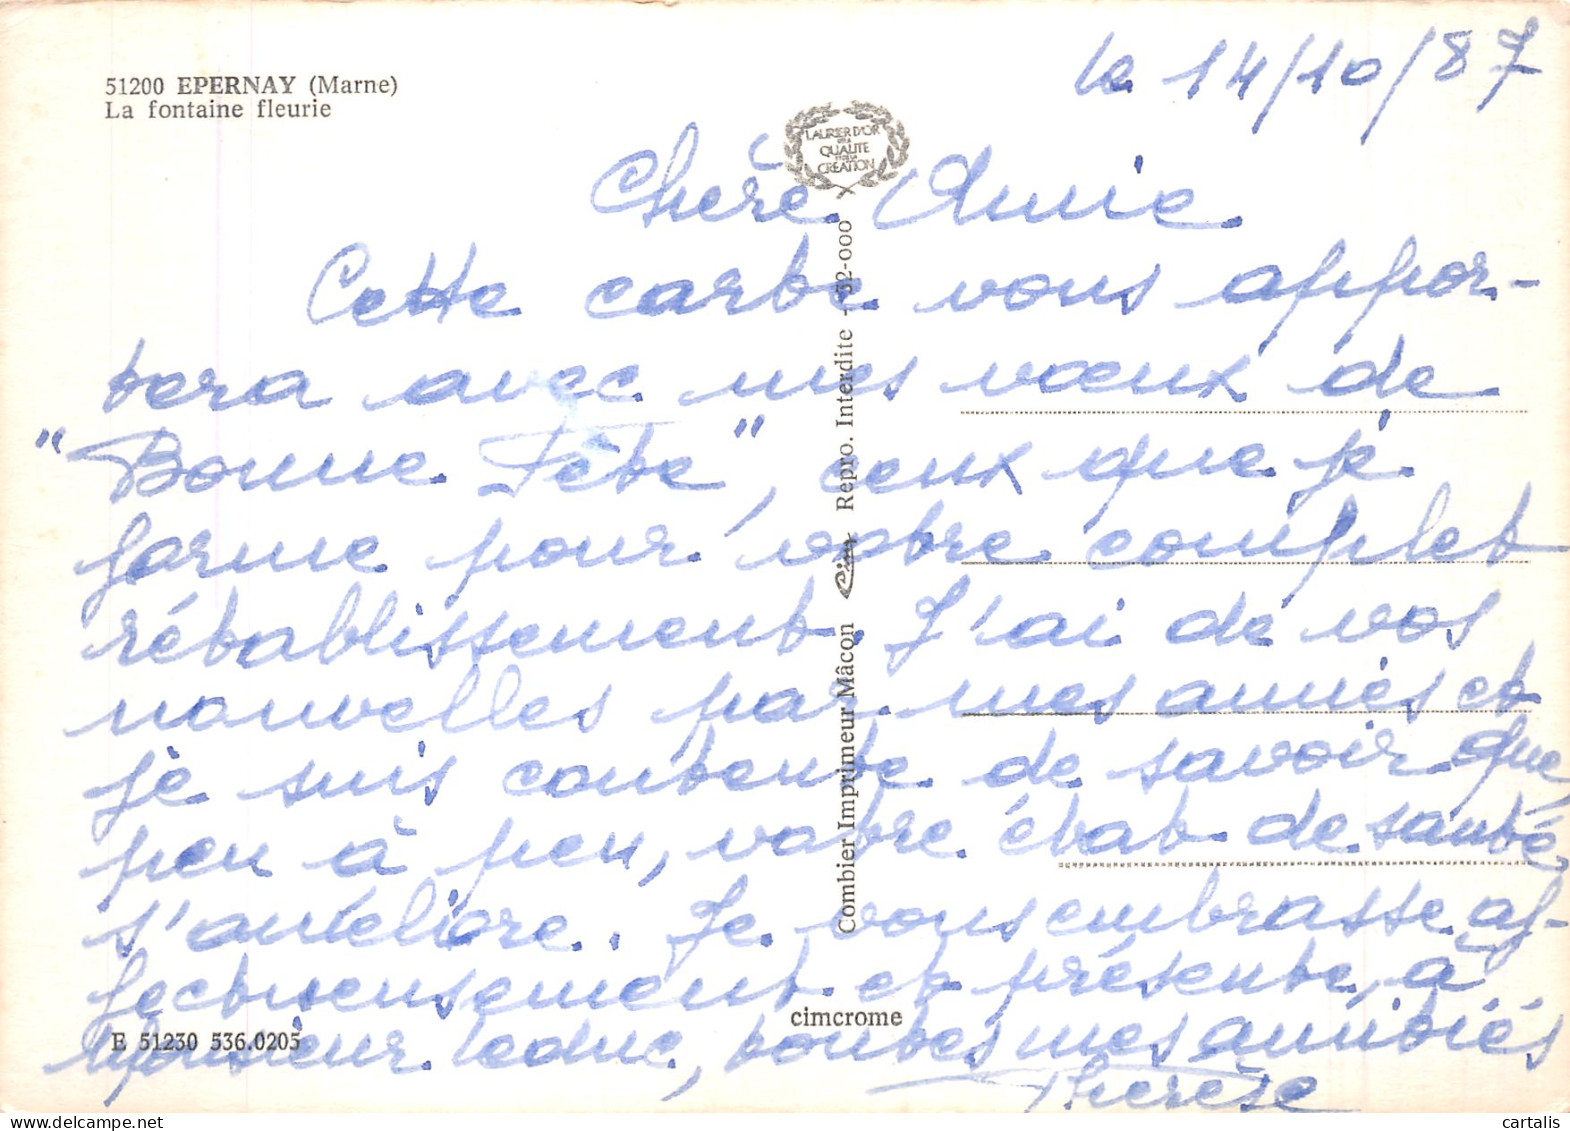 51200 EPERNAY (Marne)
La fontaine fleurie
le 14/10/87
LAURIER D'OR
QUALITE
CREATION
Chère Annie
Cette carte vous appor-
tera avec mes vœux de
"Bonne Fête", ceux que je
forme pour votre complet
rétablissement. J'ai de vos
nouvelles par mes amies et
je suis contente de savoir que
peu à peu, votre état de santé
s'améliore. Je vous embrasse af-
fectueusement et présente, à
Monsieur Leduc, toutes mes amitiés
Thérèse
E 51230 536.0205
cimcrome
Combier Imprimeur Mâcon Cim Repro. Interdite - 52-000
cartalis